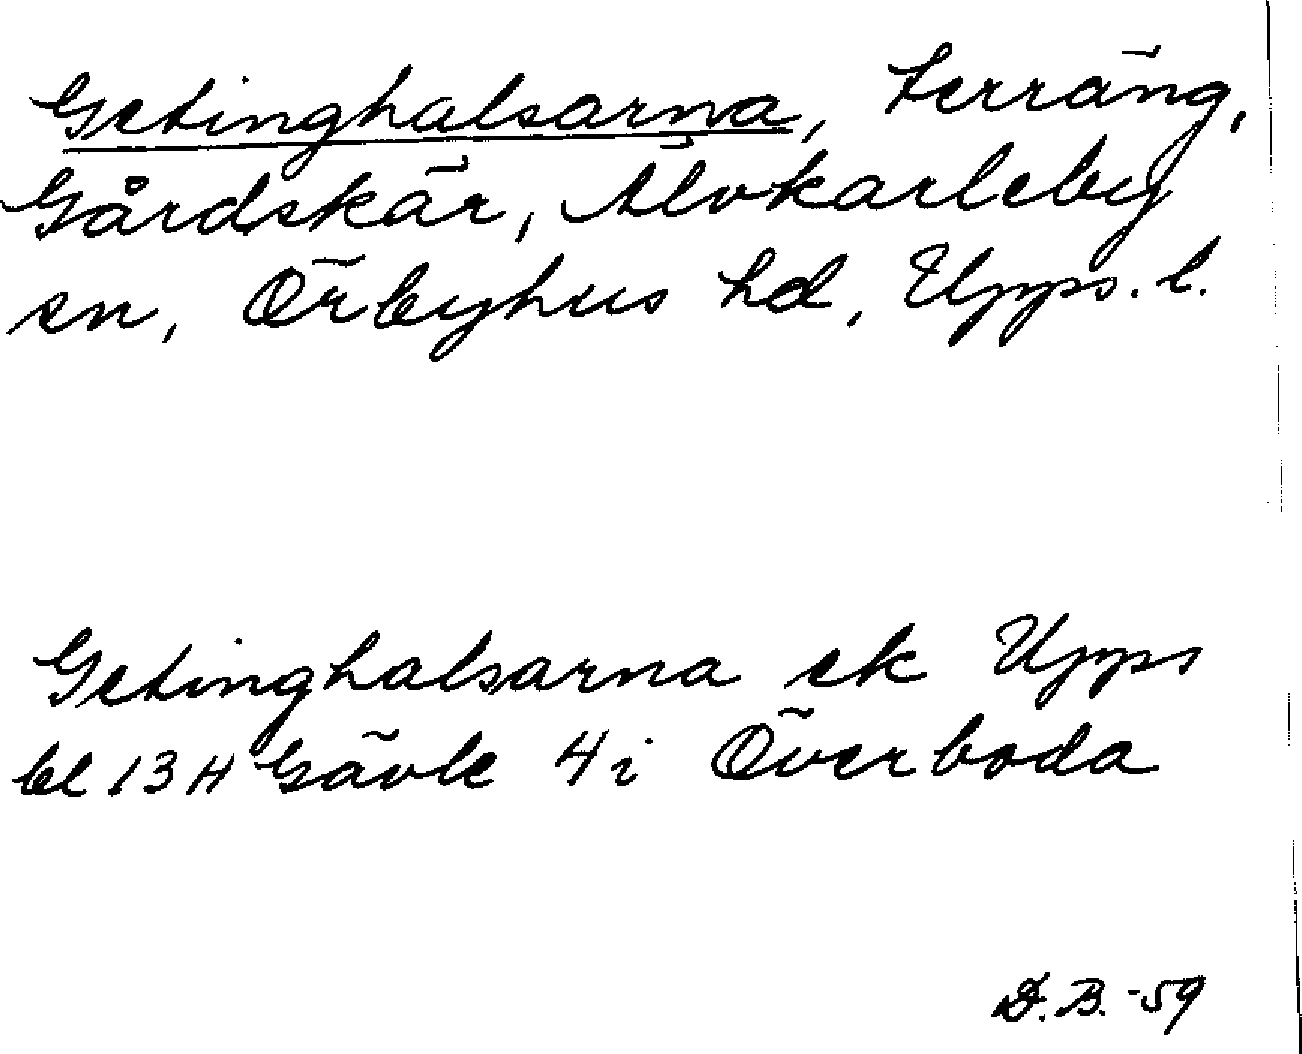 Getinghalsarna, terräng,
Gårdskär, Älvkarleby
sn, Örbyhus hd, Upps. l.
Getinghalsarna ek Upps
bl 13 H Gävle 4 i Överboda
D. B. -59